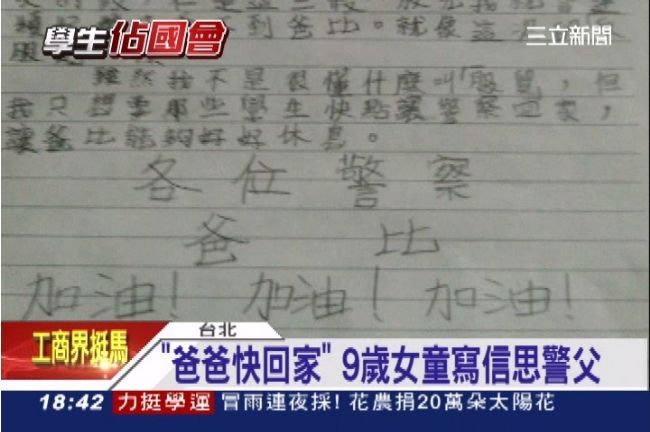 學生佔國會
三立新聞
到爸比。就像這
服
雖然我不是很懂什麼叫「服貿」,但
我只想要那些學生快點讓警察回家,
讓爸比能夠好好休息。
各位警察
爸比
加油! 加油! 加油!
台北
工商界挺馬
"爸爸快回家" 9歲女童寫信思警父
18:42 力挺學運 冒雨連夜採! 花農捐20萬朵太陽花